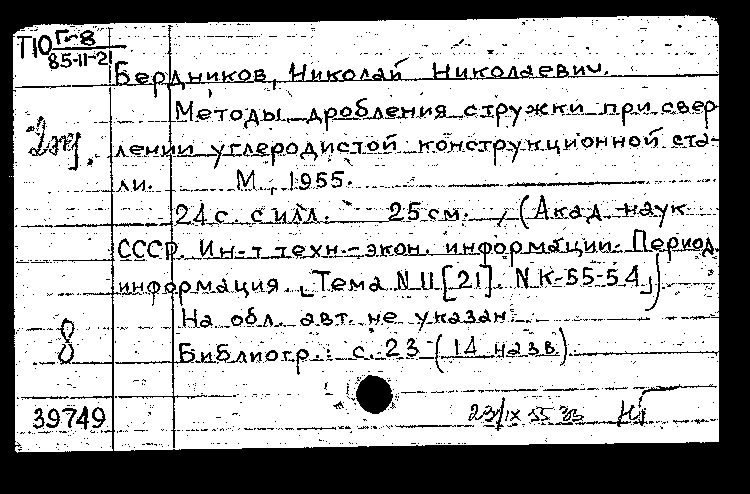 П10 Г-8
85-11-21
Бердников, Николай Николаевич.
Методы дробления стружки при свер-
2 экз.
лении углеродистой конструкционной ста-
ли. М., 1955.
24 с. с илл. 25 см. (Акад. наук
СССР. Ин-т техн.-экон. информации. Период.
информация. Тема N 11 [21]. N К-55-54)
На обл. авт. не указан.
8
Библиогр.: с. 23 (14 назв.)
39749
23/IX 55